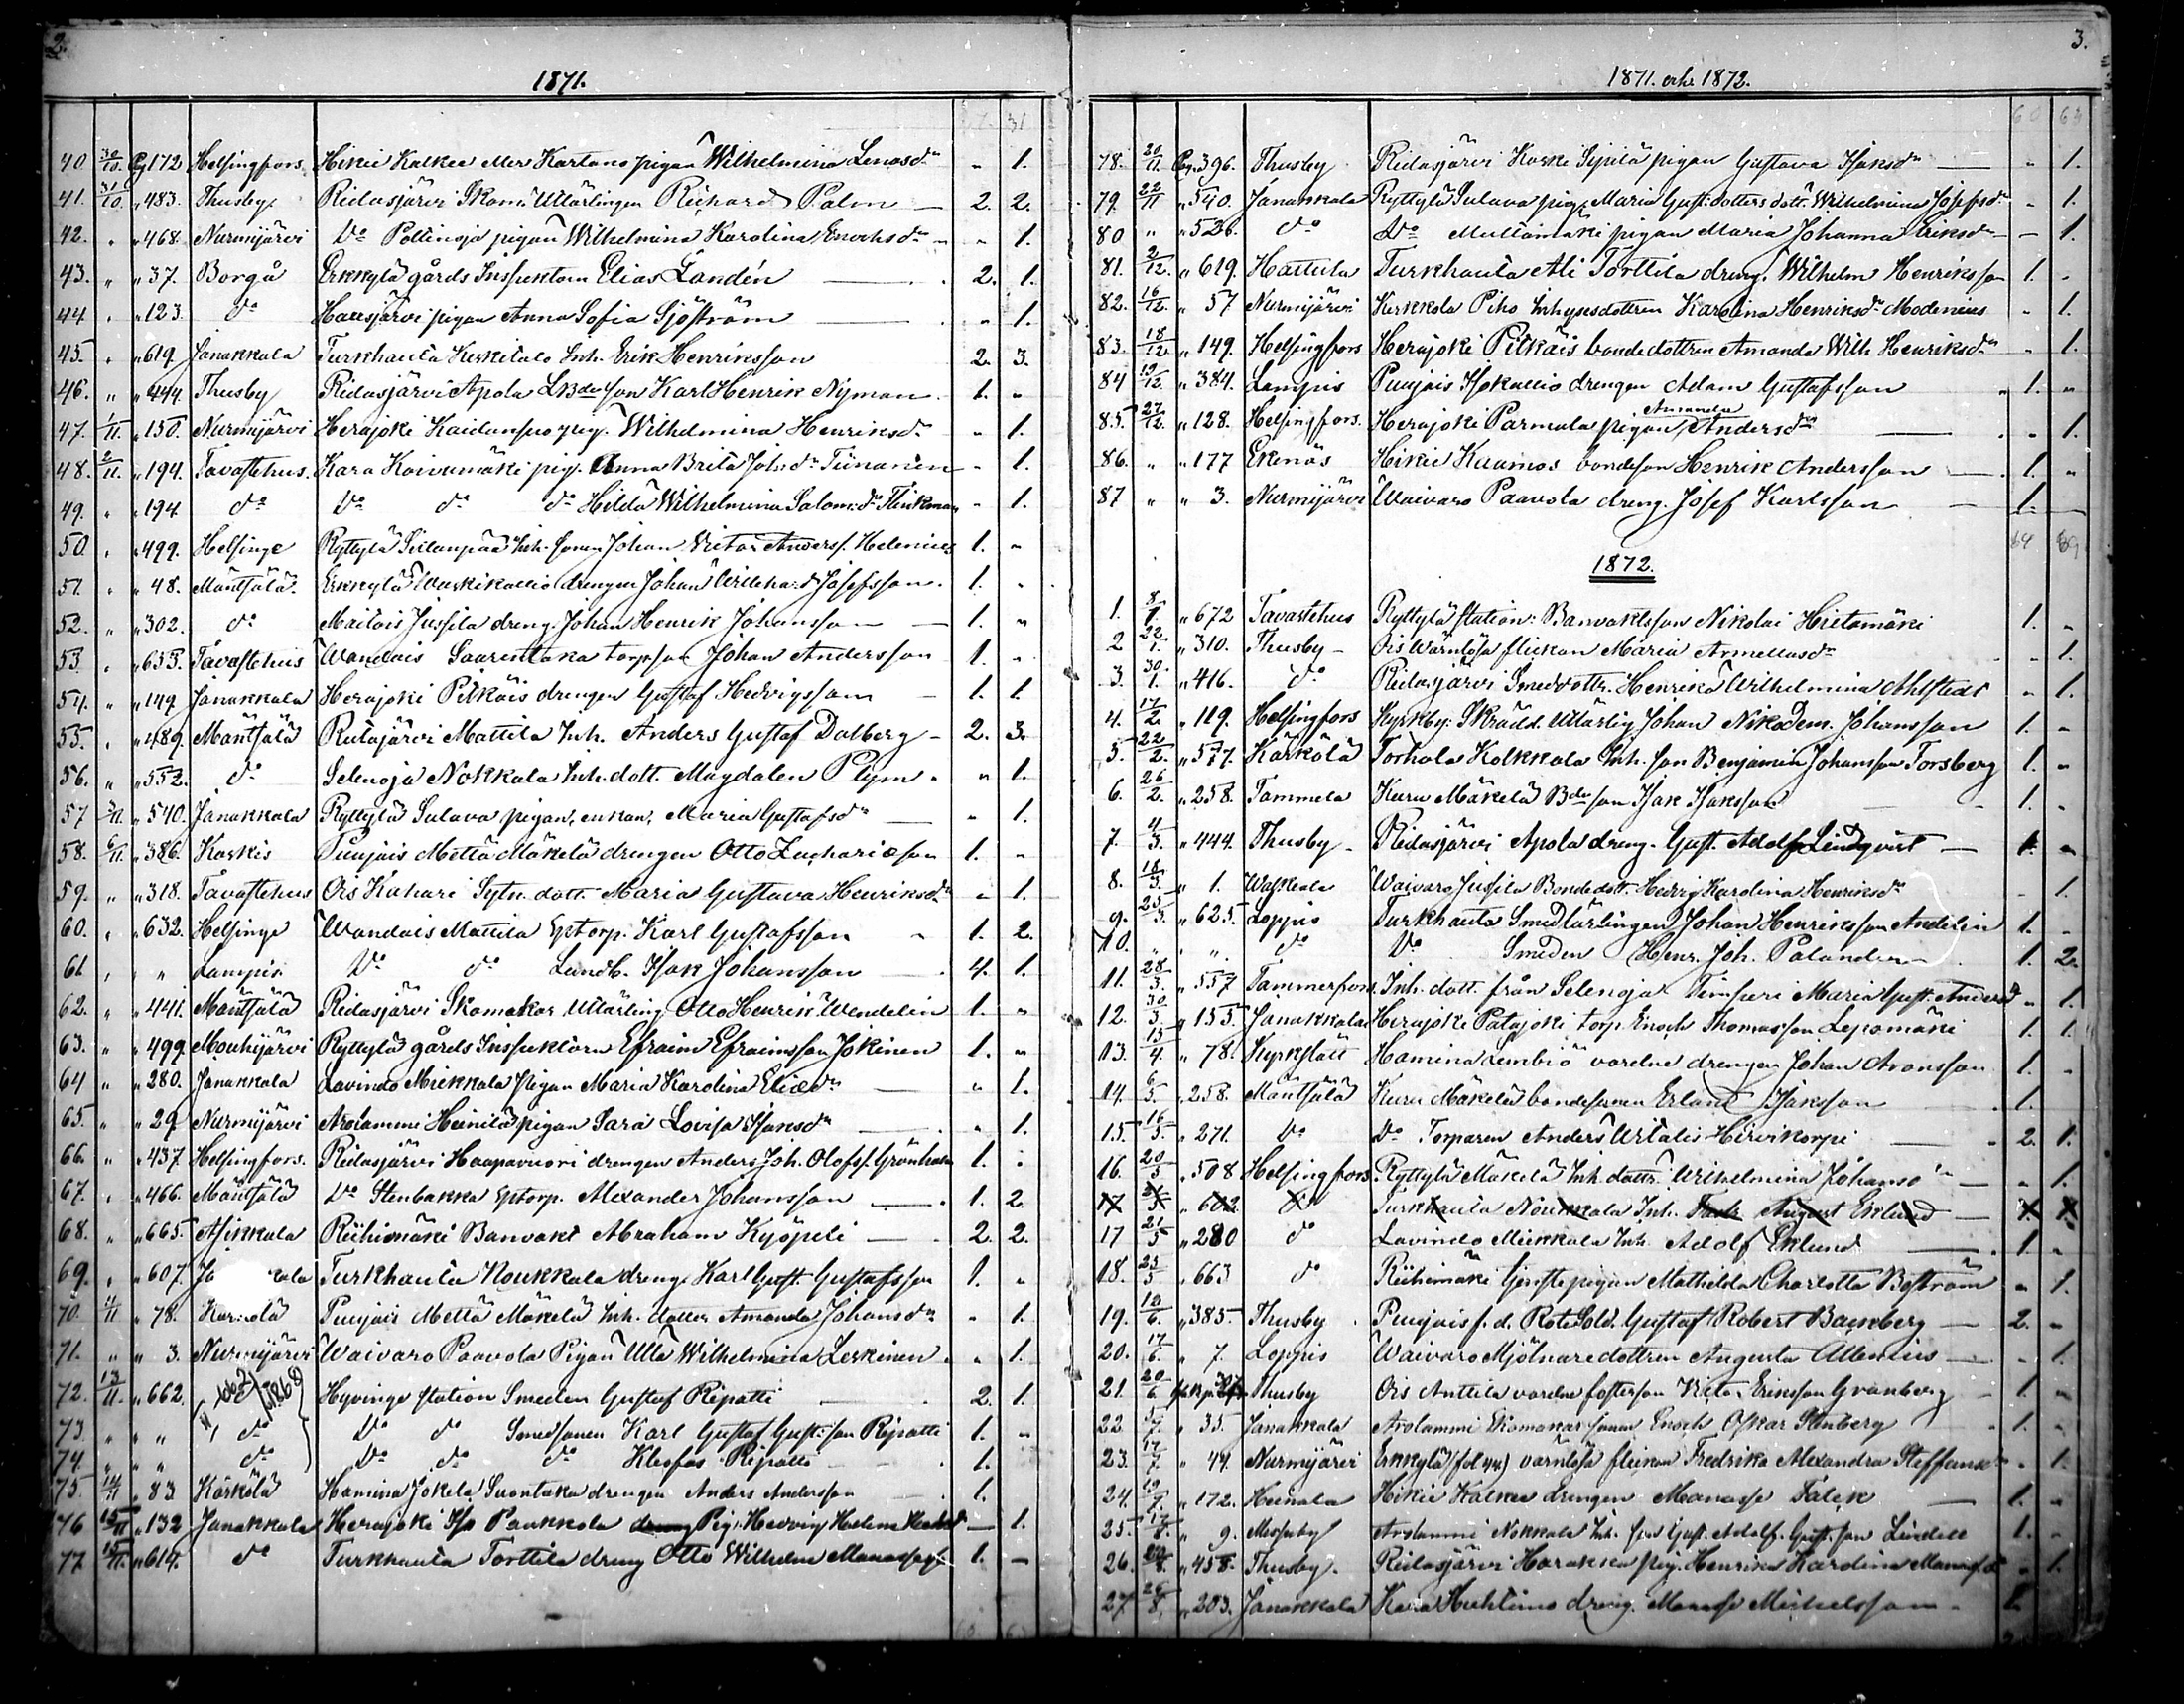 2.
1871.
40 30/10. Pag 172 Helsingfors. Hikiä Kalkea eller Kartano pigan Wilhelmina Lenasd:r " 1.
41. 31/10. " 483. Thusby. Ridasjärvi Skom: Utlärlingen Richard Palm — 2. 2.
42. " " 468. Nurmijärvi D:o Pollinoja pigan Wilhelmina Karolina Enochsd:r " 1.
43. " " 37. Borgå Erkkylä gårds Inspektoren Elias Landén — 2. 1.
44 " " 123. d:o Hausjärvi pigan Anna Sofia Sjöström — " 1.
45. " " 619. Janakkala Turkhauta Keskitalo Inh. Erik Henriksson 2. 3.
46. " " 444. Thusby Ridasjärvi Apola LBdeson Karl Henrik Nyman. 1. "
47. 1/11. " 150. Nurmijärvi Herajoki Kaidansuo pig. Wilhelmina Henriksd:r " 1.
48. 2/11. " 194. Tavastehus. Kara Koivumäki pig. Anna Brita Joh:d:r Tiinanen " 1.
49. " " 194. d:o D:o d:o d:o Hilda Wilhelmina Salom:d:r Flinkman " 1.
50. " " 499. Helsinge Ryttylä Sillanpää Inh. sonen Johan Victor Anders. Helenius 1. "
51. " " 48. Mäntsälä. Erkkylä Waskikallio drengen Johan Willehard Josefsson. 1. "
52. " " 302. d:o Maitois Jussila dreng. Johan Henrik Johansson — 1. "
53. " " 653. Tavastehus Wandais Saarentaka torpson Johan Andersson 1. "
54. " " 149 Janakkala Herajoki Pitkäis drengen Gustaf Hedvigsson — 1. 1.
55. " " 489. Mäntsälä Ridasjärvi Mattila Inh. Anders Gustaf Dalberg — 2. 3.
56. " " 552. d:o Selenoja Nokkala Inh. dott. Magdalen Plym. " 1.
57 3/11. " 540. Janakkala Ryttylä Sulava pigan, enkan, Maria Gustafsd:r — " 1.
58. 6/11. " 386. Koskis Puujais Mettä Mäkelä drengen Otto Zachariæson 1. "
59. " " 318. Tavastehus Ois Kahari Sytn. dott. Maria Gustava Henriksd:r " 1.
60. " " 632. Helsinge Wandais Mattila Extorp. Karl Gustafsson " 1. 2.
61 " " " Lampis. D:o d:o Landb. Isak Johansson — 4. 1.
62. " " 441. Mäntsälä Ridasjärvi Skomakar Utlärling Otto Henrik Wendelin 1. "
63. " " 499 Mouhijärvi Ryttylä gårds Inspektorn Efraim Efraimsson Jokinen 1. "
64 " " 280. Janakkala Lavindo Miekkala Pigan Maria Karolina Eliæd:r — " 1.
65. " " 29 Nurmijärvi Arolammi Heinilä pigan Sara Lovisa Isaksd:r — " 1.
66. " " 437. Helsingfors. Ridasjärvi Haapavuori drengen Anders Joh. Olofss. Grönholm 1. "
67. " " 466. Mäntsälä D:o Stenbakka Extorp. Alexander Johansson — 1. 2.
68. " " 665. Asikkala Riihimäki Banvakt Abraham Kyöpeli — 2. 2.
69. " " 607. Ja kala Turkhauta Noukkala dreng. Karl Gust. Gustafsson 1. "
70. 11/11 " 78. Kärkölä Puujais Mettä Mäkelä Inh. dotter Amanda Johansd:r " 1.
71. " " 3. Nurmijärvi Waivaro Paavola Pigan Ulla Wilhelmina Leskinen " 1.
72. 13/11. " 662. 1868 Hyvinge station Smeden Gustaf Ripatti — 2. 1.
73. " " " d:o D:o d:o Smedsonen Karl Gustaf Gust:son Ripatti 1. "
74. " " " d:o D:o d:o d:o Klesfas Ripatti — 1.
75. 14/11 " 83. Kärkölä Hamina Jokela Suontaka drengen Anders Andersson — 1.
76 15/11 " 132 Janakkala Herajoki Iso Paukkola Pig. Hedvig Helena — 1.
77 15/11. " 614. d:o Turkhauta Torttila dreng Otto Wilhelm Manasses. 1. —
3.
1871. och. 1872.
78. 20/11. Pag. 396. Thusby Ridasjärvi Koski Sipilä pigan Gustava Isaksd:r — " 1.
79. 22/11 " 540. Janakkala Ryttylä Sulava pig. Maria Gust:dotters dott. Wilhelmina Josefsd:r " 1.
80 " " 526. d:o D:o Mullamäki pigan Maria Johanna Eriksd:r — 1.
81. 2/12. " 619. Hattula Turkhauta Ali Torttila dreng. Wilhelm Henriksson 1. "
82. 16/12. " 57 Nurmijärvi Kirkkola Piho Inhysesdottren Karolina Henriksd:r Modenius " 1.
83. 18/12. " 149. Helsingfors Herajoki Pitkäis bondedottren Amanda Wilh. Henriksd:r " 1.
84 19/12. " 384. Lampis Puujais Isokallio drengen Adam Gustafsson " 1. "
85. 27/12. " 128. Helsingfors. Herajoki Parmala pigan Amanda Andersd:r — " 1.
86. " " 177 Ekenäs Hikiä Kaamos bondeson Henrik Andersson — 1. "
87 " " 3. Nurmijärvi Waivaro Paavola dreng. Josef Karlsson — 1.
64 69
1872.
1. 8/1. " 672 Tavastehus Ryttylä station: Banvaktsson Nikolai Hietamäki 1. "
2 22/1. " 310. Thusby — Ois Wärnlösa flickan Maria Armellasd:r " 1.
3. 30/1. " 416. d:o Ridasjärvi Smeddottr. Henrika Wilhelmina Ahlstedt " 1.
4. 17/2. " 119. Helsingfors Kyrkby: Skrädd. Utlärlig Johan Nikodem. Johansson 1. "
5. 22/2. " 577. Kärkölä Torhola Kolkkala Inh. son Benjamin Johansson Forsberg 1. "
6. 26/2. " 258. Tammela Kuru Mäkelä Bdeson Isak Isaksson — 1. "
7. 4/3. " 444. Thusby — Ridasjärvi Apola dreng. Gust. Adolf Lindqvist — 1. "
8. 18/3. " 1. Waskeala Waivaro Jussila Bondedott. Hedvig Karolina Henriksd:r " 1.
9. 25/3. " 625. Loppis Turkhauta Smedlärlingen Johan Henriksson Andelin 1. "
10. " " " d:o D:o Smeden Henr. Joh. Palander — 1. 2.
11. 28/3. " 557 Tammerfors. Inh. dott. från Selenoja Timperi Maria Gust. Andersd " 1.
12. 30/3. " 155. Janakkala Herajoki Patajoki torp. Enoch Thomasson Lepomäki 1. 1.
13. 15/4. " 78. Kyrkslätt Hamina Lembiö vordne drengen Johan Aronsson 1. "
14. 6/5. " 258. Mäntsälä Kuru Mäkelä bondesonen Erland Isaksson — 1.
15. 16/5. " 271. D:o D:o Torparen Anders Witalis Hirvikorpi — 2. 1.
16. 20/5 " 508 Helsingfors Ryttylä Mäkelä Inh. dottr. Wilhelmina Johansd:r — " 1.
17 21/5 " 602 d:o Turkhauta Noukkala Inh. August Eklund — 1. 1.
17 21/5 " 280 d:o Lavindo Miekkala Inh. Adolf Eklund — 1. "
18. 25/5 " 663 d:o Riihimäki Gjestgpigan Mathilda Charlotta Boström " 1.
19. 10/6. " 385. Thusby. Puujais f.d. RoteSold. Gustaf Robert Bamberg — 2. "
20. 17/6. " 7. Loppis Waivaro Mjölnaredottren Augusta Allenius — " 1.
21. 20/6 Thusby Ois Anttila vordne fosterson Victor Eriksson Granberg — 1. "
22 5/7. " 35. Janakkala Arolammi Skomakarsonen Enoch Oskar Stenberg 1. "
23. 17/7 " 44. Nurmijärvi Erkkylä (fol. 44) värnlösa flickan Fredrika Alexandra Steffansd:r " 1.
24. 19/7. " 172. Heinola Hikiä Kalkea drengen Manasse Falck — 1. "
25. 17/8. " 9. Messuby Arolammi Nokkala Inh. son Gust. Adolf. Gust.son Lindell 1. "
26. 20/8. " 458. Thusby. Ridasjärvi Harakka pig. Henrika Karolina Manass.d " 1.
27. 26/8. " 203. Janakkala Kara Huhtimo dreng. Manasse Mickelsson — 1.